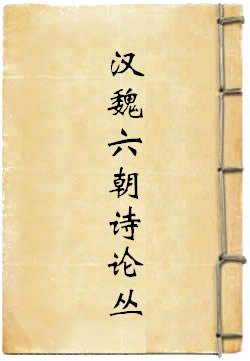 汉魏六朝诗论丛